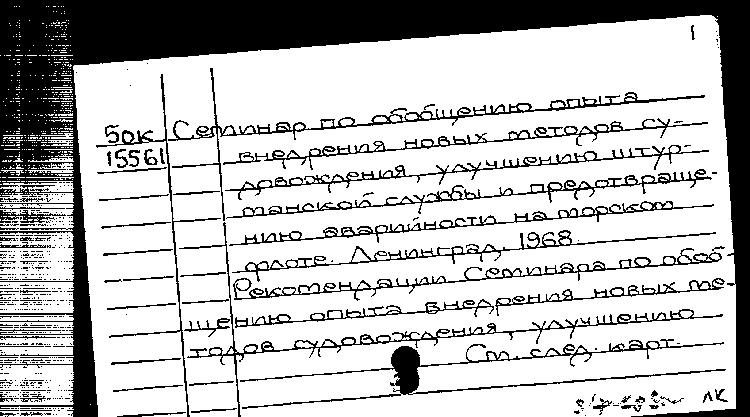 1
50к Семинар по обобщению опыта
15561 внедрения новых методов су-
довождения, улучшению штур-
манской службы и предотвраще-
нию аварийности на морском
флоте. Ленинград, 1968.
Рекомендации Семинара по обоб-
щению опыта внедрения новых ме-
тодов судовождения, улучшению
См. след. карт.
ЛК